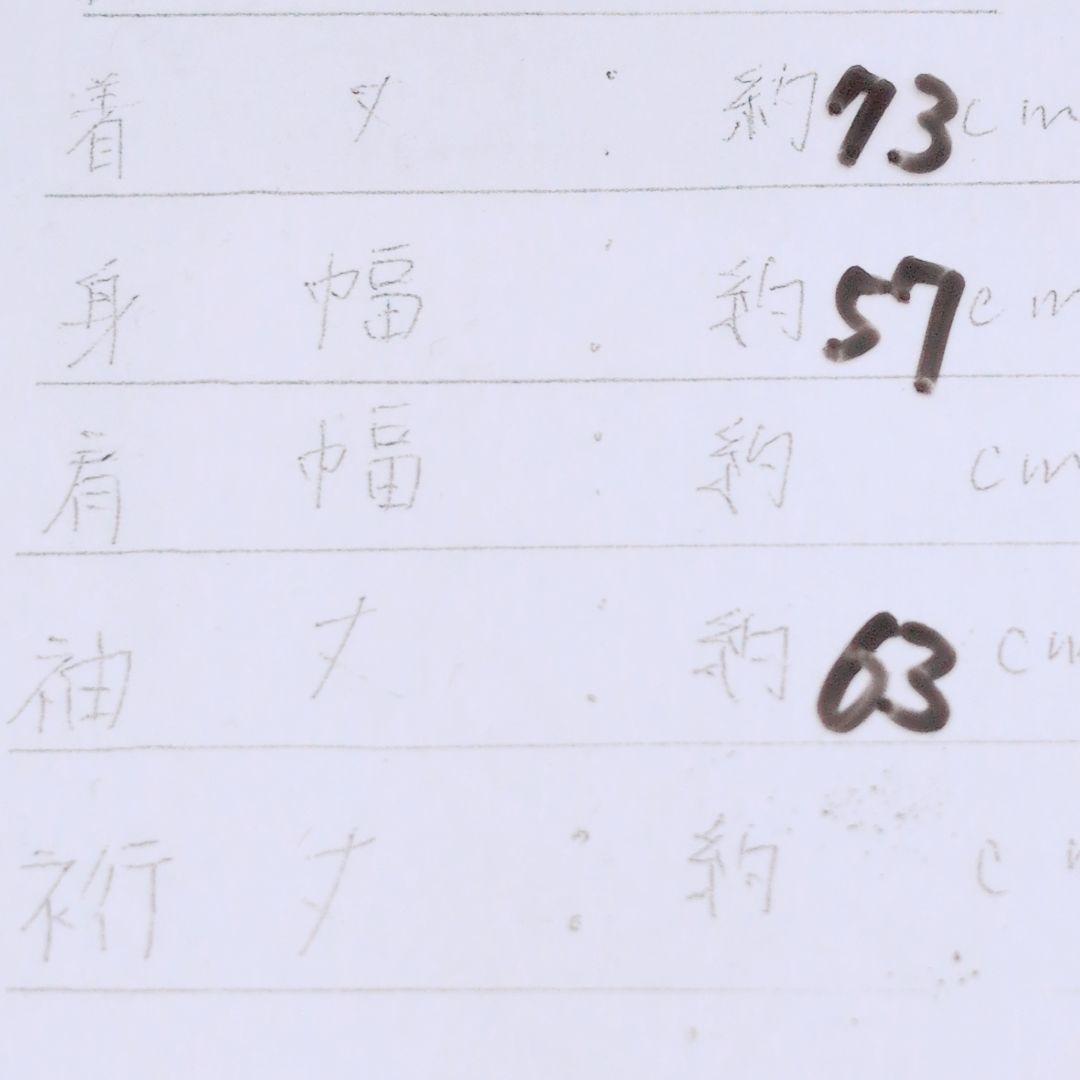 着 丈 : 約73cm
身 幅 : 約57cm
肩 幅 : 約 cm
袖 丈 : 約63cm
裄 丈 : 約 c